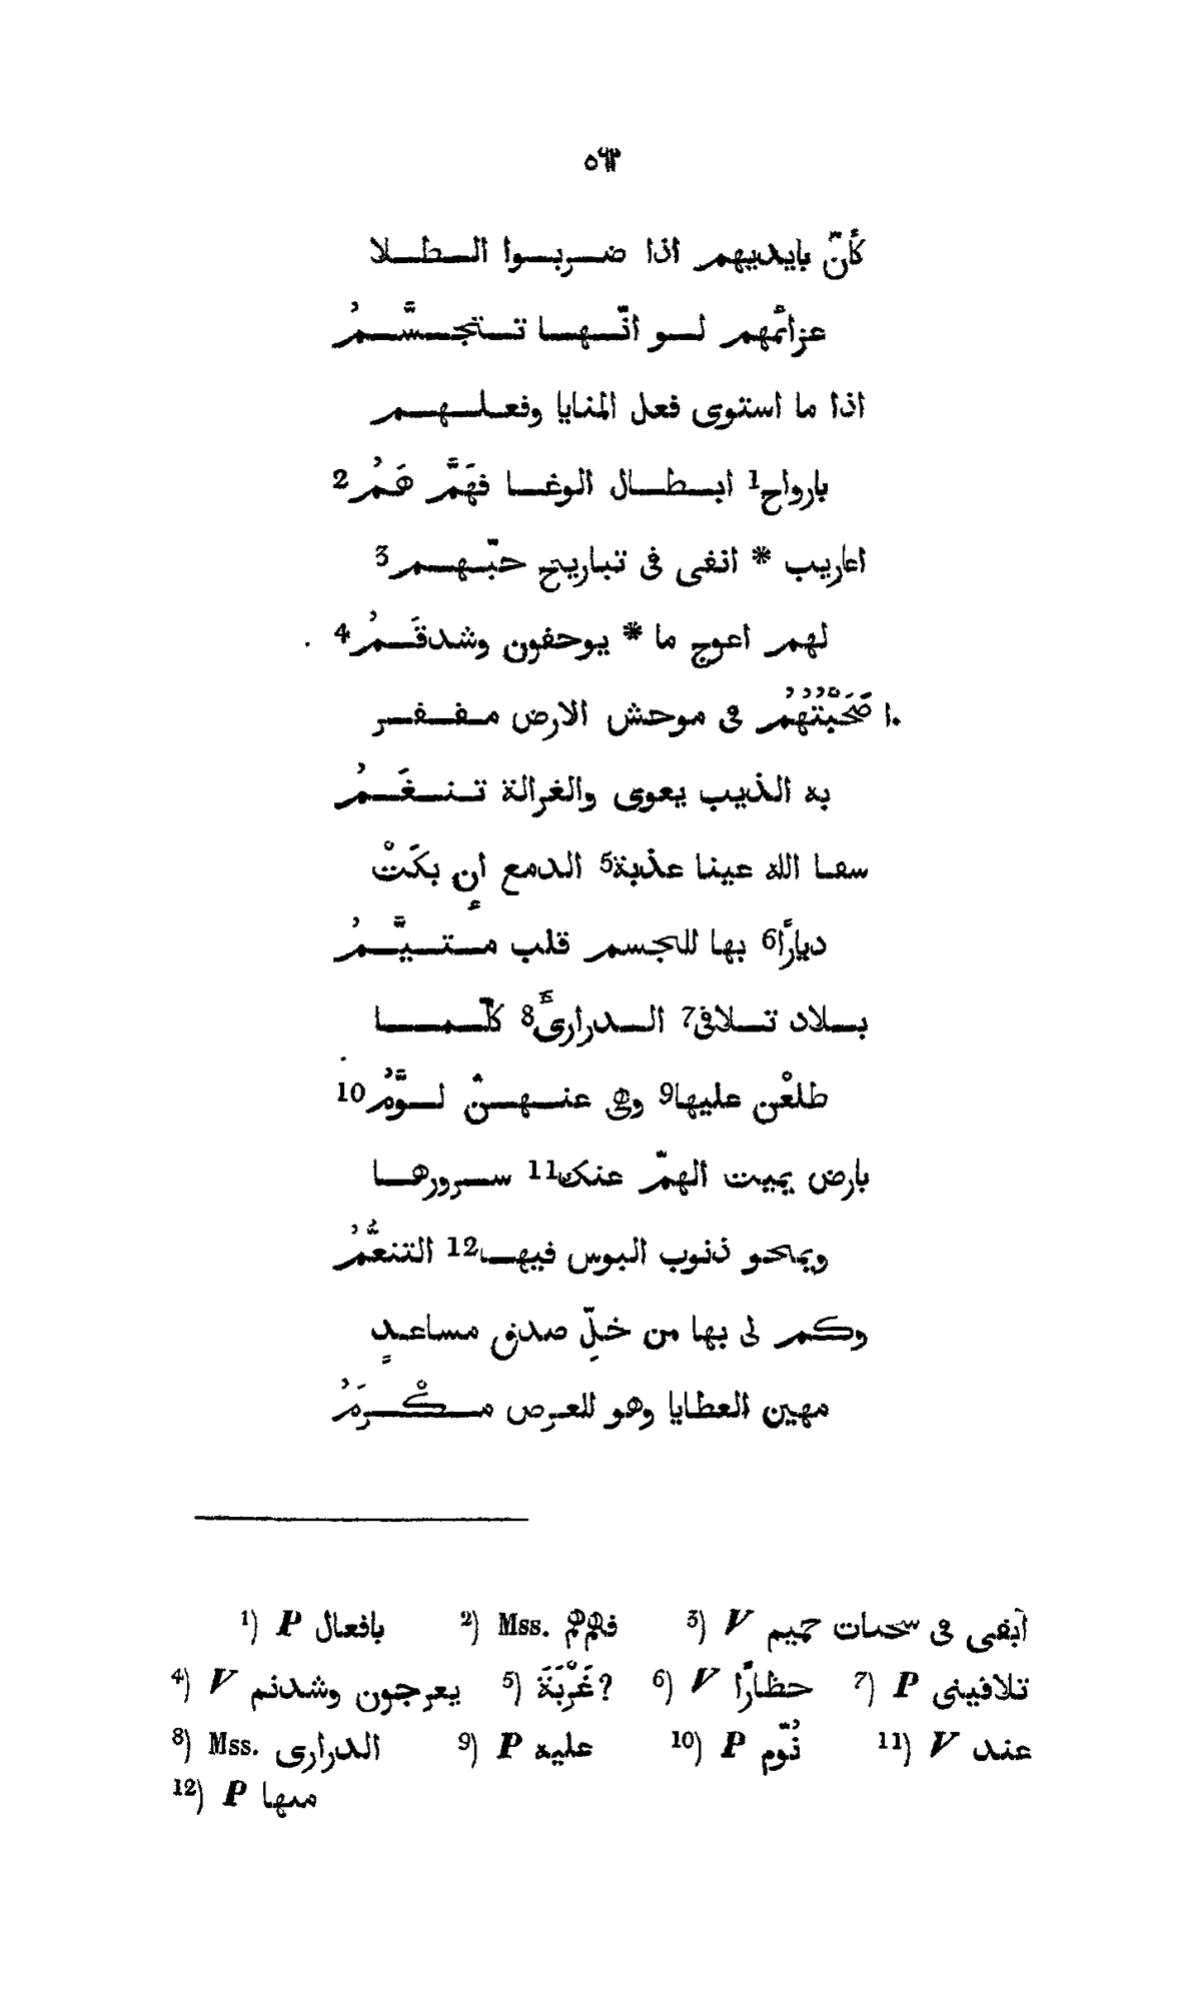 ٥٣
كأنّ بايديهم اذا ضربوا الطلا
عزائمهم لو انّها تتجسَّمُ
اذا ما استوى فعل المنايا وفعلهم
بارواح1 ابطال الوغا فهَمَّ هَمُ2
اعاريب * انفى فى تباريح حبّهم3
لهم اعوج ما * يوحفون وشدقَمُ4
١٠ صَحَبْتُهُمُ فى موحش الارض مقفر
به الذيب يعوى والغزالة تنغَمُ
سقا الله عينا عذبة5 الدمع إن بكَتْ
ديارًا6 بها للجسم قلب متيَّمُ
بلاد تلافى7 الدرارىَّ8 كلّما
طلعْن عليها9 وهى عنهنّ لوَّمُ10
بارض يميت الهمّ عنك11 سرورها
ويمحو ذنوب البوس فيها12 التنعُّمُ
وكم لى بها من خلِّ صدق مساعدٍ
مهين العطايا وهو للعرض مكْرَمُ
1) P بافعال 2) Mss. فهم هم 3) V أبقى فى سحبات حميم
4) V يعرجون وشدنم 5) غَرْبَةَ? 6) V حظارًا 7) P تلافينى
8) Mss. الدرارى 9) P عليه 10) P نُوّم 11) V عند
12) P منها